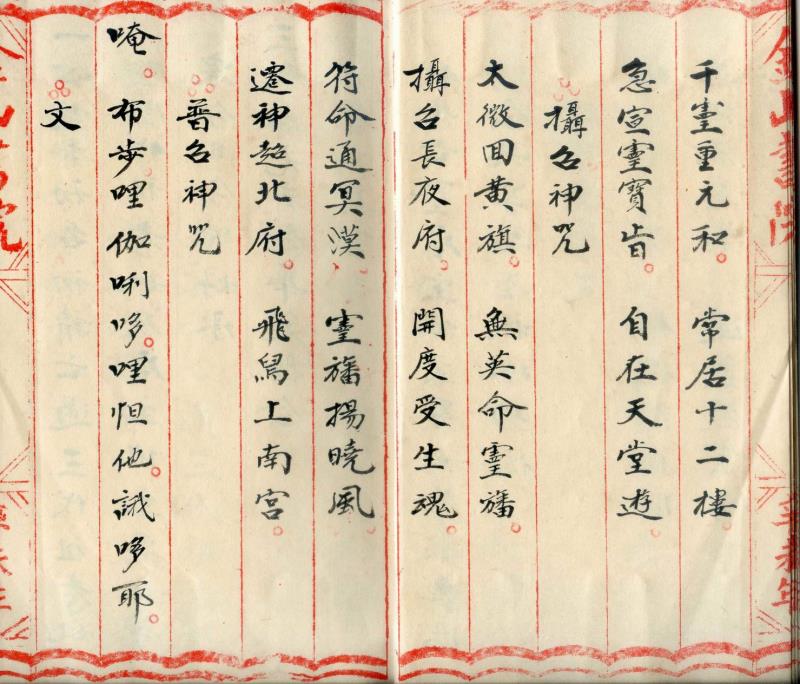 金山書院 辛未年
千靈重元和。 常居十二樓。
急宣靈寶旨。 自在天堂遊。
攝召神咒
太微回黄旗。 無英命靈旛。
攝召長夜府。 開度受生魂。
符命通冥漠。 靈旛揚曉風。
遷神超北府。 飛舄上南宮。
普召神咒
唵。布步哩伽唎哆哩怛他。誐哆耶。
文